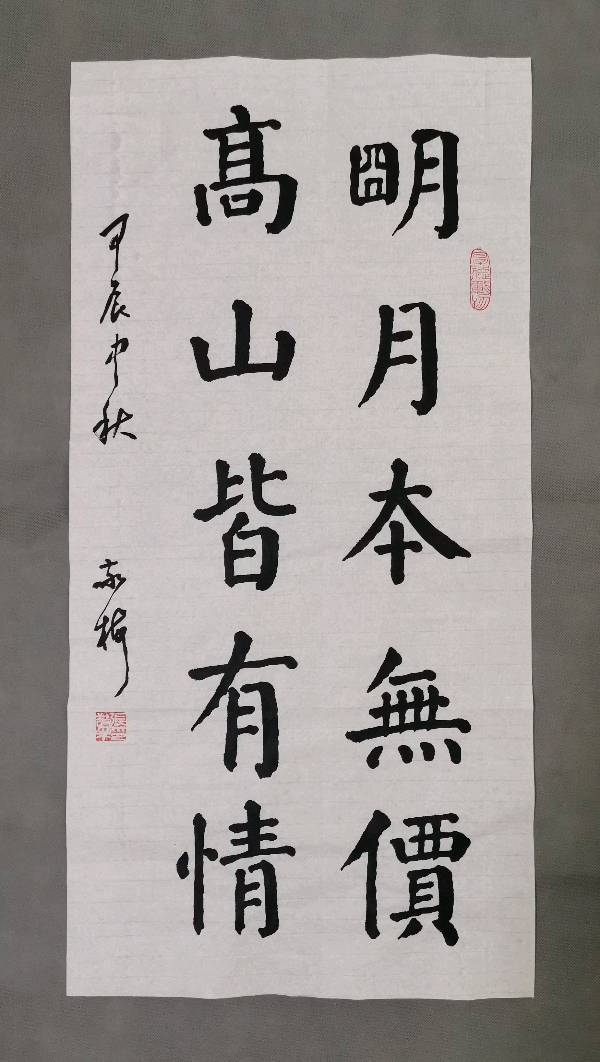 明月本無價
髙山皆有情
甲辰中秋